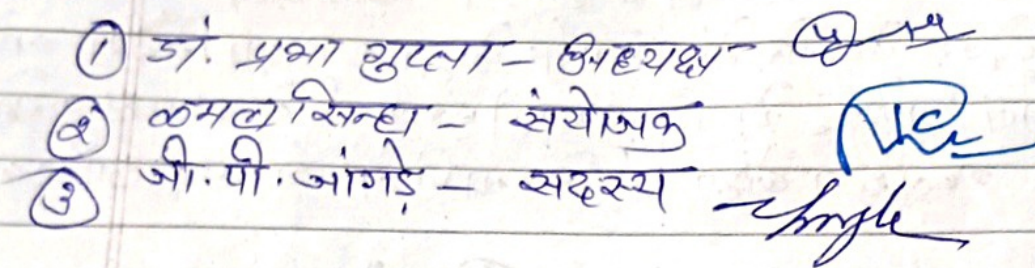 ① डॉ. प्रभा गुप्ता - अध्यक्ष
② कमल सिन्हा - संयोजक
③ जी. पी. जांगड़े - सदस्य